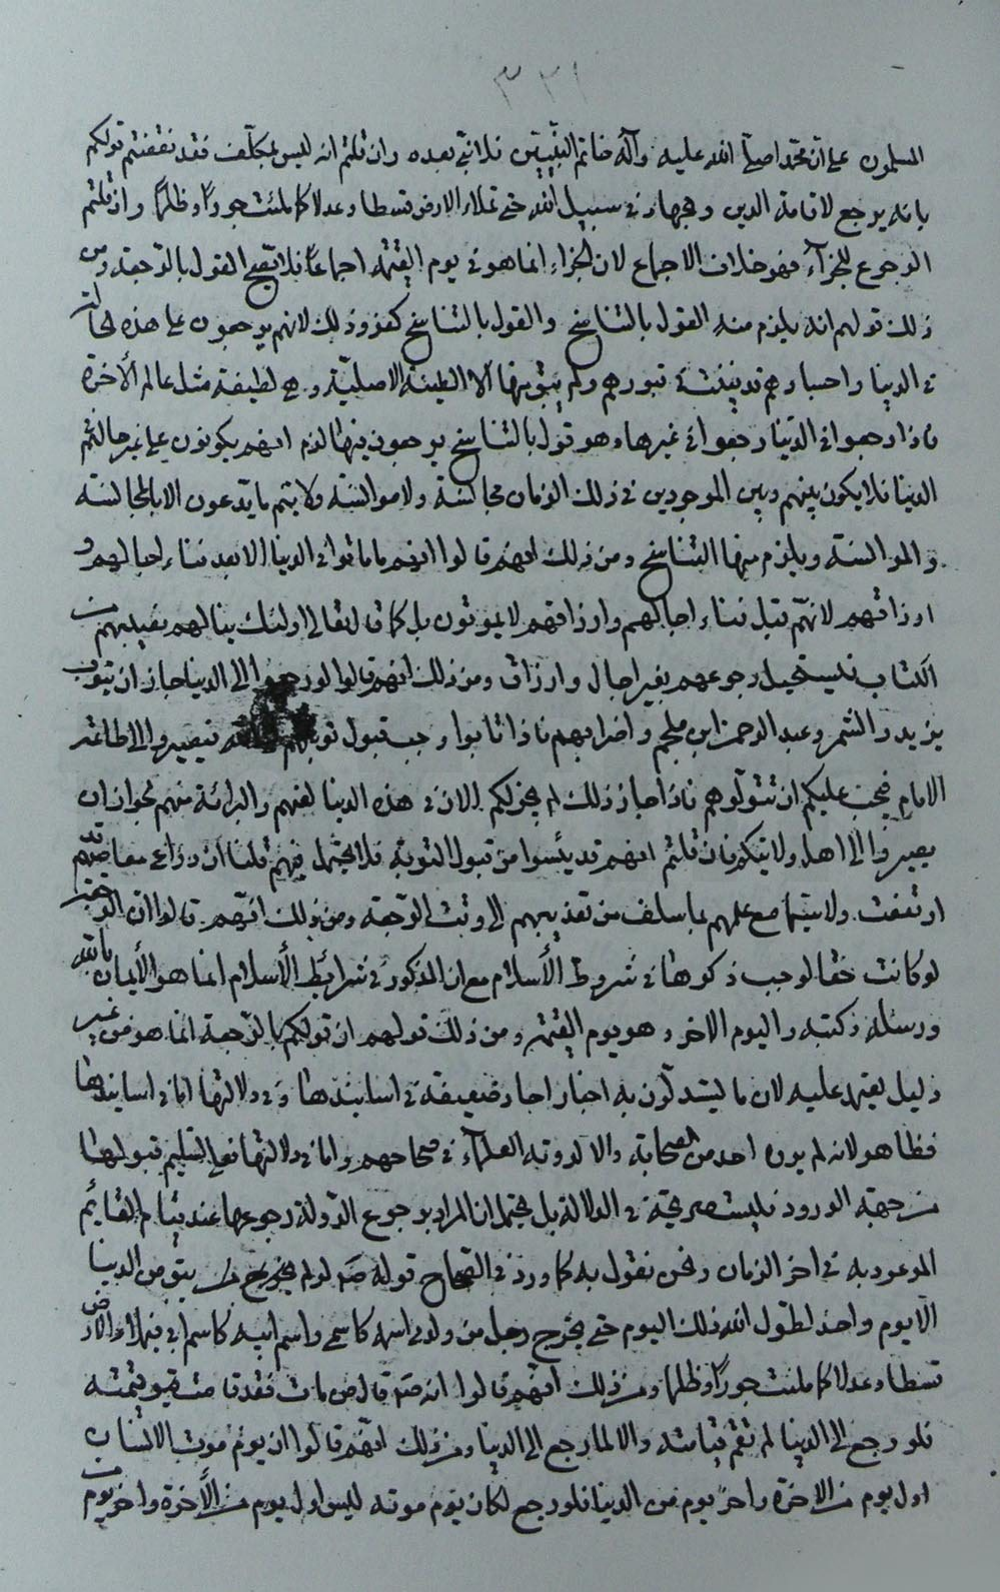 ٣٢١
المسلمون على ان محمدا صلى الله عليه وآله خاتم النبيين فلا نبي بعده وان قلتم انه ليس بمكلف فقد نقضتم قولكم
بانه يرجع لاقامة الدين ويجهاد في سبيل الله حتى تملاء الارض قسطا وعدلا كما ملئت جورا وظلما وان قلتم
الرجوع للجزآء فهو خلاف الاجماع لان الجزاء انما هو في يوم القيمة اجماعا فلا يصح القول بالرجعة ومن
ذلك قولهم انه يلزم منه القول بالتناسخ والقول بالتناسخ كفر وذلك لانهم يرجعون على هذه الحالة
في الدنيا واجسادهم قد فنيت في قبورهم ولم يبق منها الا الطينة الاصلية وهي لطيفة مثل عالم الأخرة
فاذا رجعوا في الدنيا رجعوا في غيرها وهو قول بالتناسخ يرجعون فيها لزم انهم يكونون على غير حالتهم
الدنيا فلا يكون بينهم وبين الموجودين في ذلك الزمان مجالسة ولا موانسة ولا يتم ما يدعون الا بالمجالسة
والموانسة ويلزم منها التناسخ ومن ذلك انهم قالوا انهم ما ماتوا في الدنيا الا بعد فناء اجالهم و
ارزاقهم لانهم قبل فناء اجالهم وارزاقهم لا يموتون بل كما قال تعالى اولئك ينالهم نصيبهم من
الكتاب فيستحيل رجوعهم بغير اجال وارزاق ومن ذلك انهم قالوا لو رجعوا الى الدنيا جاز ان يتوب
يزيد والشمر وعبد الرحمن ابن ملجم واضرابهم فاذا تابوا وجب قبول توبتهم فيصيروا الى طاعة
الامام فيجب عليكم ان تتولوهم فاذا جاز ذلك لم يجز لكم الان في هذه الدنيا لعنهم والبرائة منهم لجواز ان
يصيروا الى اهل ولايتكم فان قلتم انهم قد يئسوا من قبول التوبة فلا يحتمل فيهم قلنا ان دواعي معاصيهم قد
ارتفعت ولا سيما مع علمهم بما سلف من تعذيبهم الى وقت الرجعة ومن ذلك انهم قالوا ان الرجعة
لو كانت حقا لوجب ذكرها في شروط الأسلام مع ان المذكور في شرائط الأسلام انما هو الأيمان بالله
ورسله وكتبه واليوم الاخر وهو يوم القيمة ومن ذلك قولهم ان قولكم بالرجعة انما هو من غير
دليل يعتمد عليه لان ما يستدلون به اخبار احاد ضعيفة في اسانيدها وفي دلالتها اما في اسانيدها
فظاهر لانه لم يروه احد من الصحابة والا لدونه العلمآء في صحاحهم واما في دلالتها فعلى تسليم قبولها
من جهة الورود فليست صريحة في الدلالة بل يحتمل ان المراد برجوع الدولة رجوعها عند قيام القائم
الموعود به في اخر الزمان ونحن نقول به كما ورد في الصحاح قوله ص لو لم يبق من الدنيا
الا يوم واحد لطول الله ذلك اليوم حتى يخرج رجل من ولدي اسمه كاسمي واسم ابيه كاسم ابي فيملاء الارض
قسطا وعدلا كما ملئت جورا وظلما ومن ذلك انهم قالوا انه ص قال من مات فقد قامت قيمته
فلو رجع الى الدنيا لم تقم قيامته والا لما رجع الى الدنيا ومن ذلك انهم قالوا ان يوم موت الانسان
اول يوم من الاخرة واخر يوم من الدنيا فلو رجع لكان يوم موته ليس اول يوم من الأخرة واخر يوم من